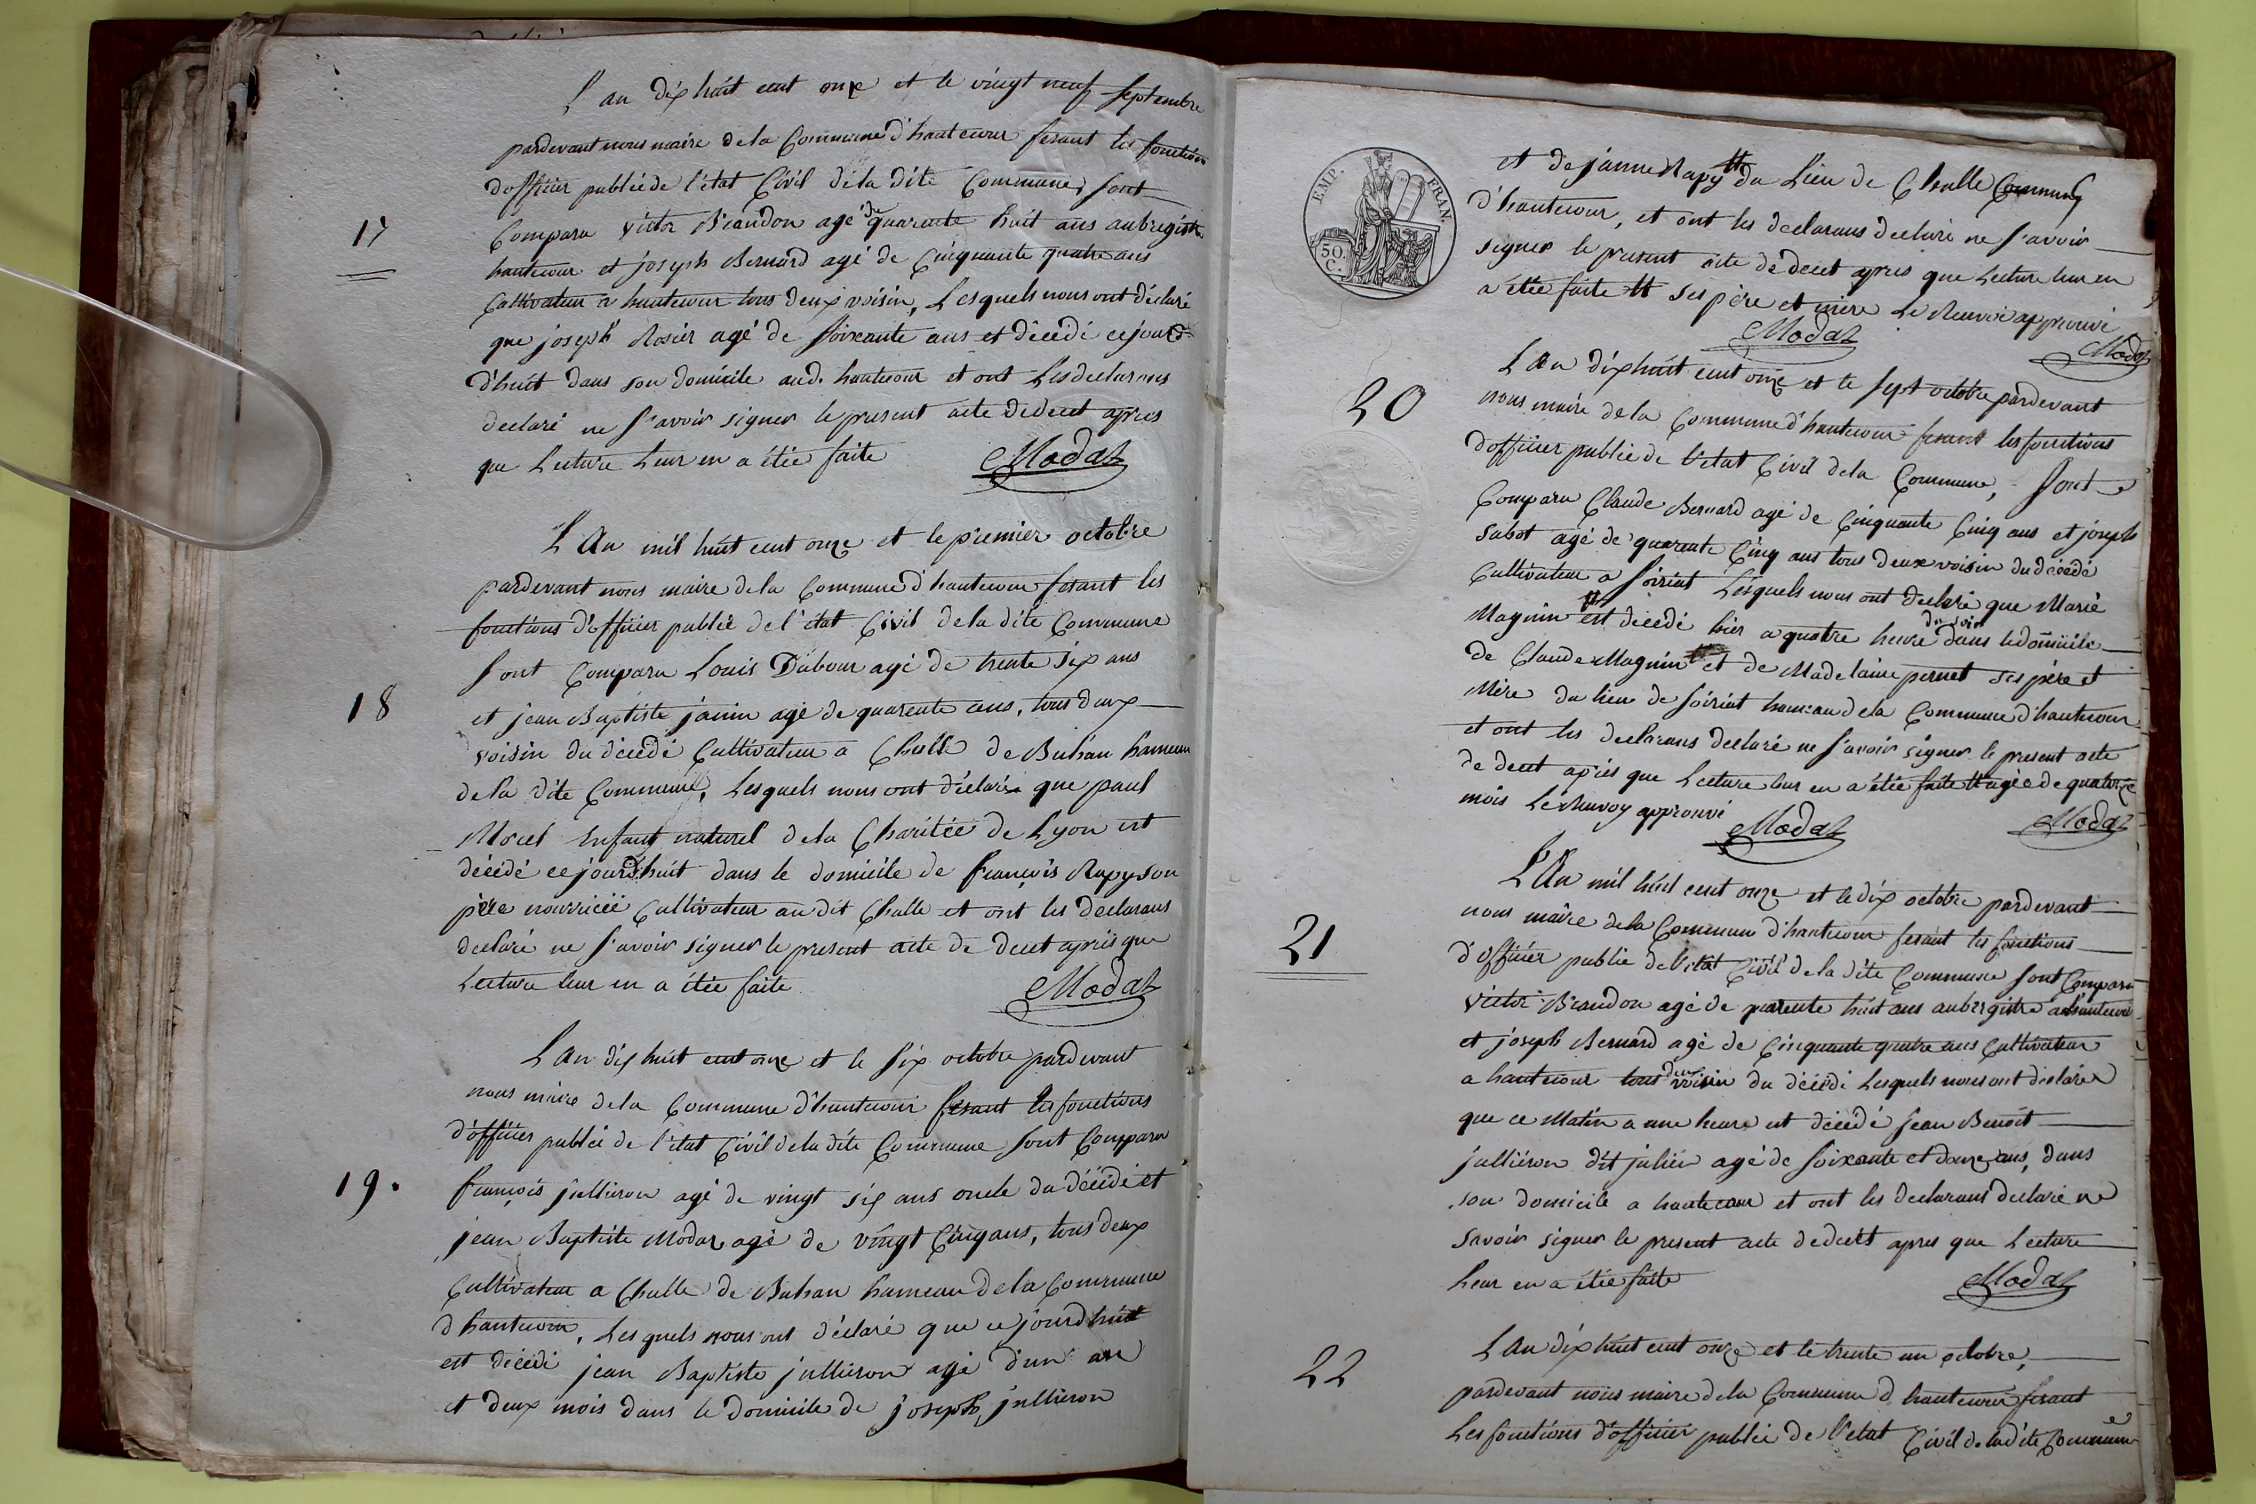 L'an dix huit cent onze et le vingt neuf septembre
pardevant nous maire de la Commune d'hautecour fesant les fonctions
d'officier public de l'état Civil de la dite Commune, sont
17
Comparu victor Brandon agé de quarante huit ans aubergiste
hautecour et joseph Bernard agé de Cinquante quatre ans
Cultivateur a hautecour tous deux voisin, Lesquels nous ont déclaré
que joseph Rosier agé de soixante ans et décédé cejourd
d'huit dans son domicile aud. hautecour et ont Les declarans
declaré ne s'avoir signer le present acte de decet apres
que Lecture Leur en a étée faite Modaz
L'An mil huit cent onze et le premier octobre
pardevant nous maire de la Commune d'hautecour fesant les
fonctions d'officier public de l'état Civil de la dite Commune
sont Comparu Louis Dubour agé de trente six ans
18
et jean Baptiste janin agé de quarente ans, tous deux
voisin du décédé Cultivateur a Challe de Bohan hameau
de la dite Commune, Lesquels nous ont déclaré que paul
Morel enfant naturel de la Charitée de Lyon est
décédé cejourd'huit dans le domicile de françois Rapy son
père nourricié Cultivateur au dit Challe et ont les declarans
declaré ne s'avoir signer le present acte de decet après que
Lecture leur en a étée faite Modaz
L'An dix huit cent onze et le six octobre pardevant
nous maire de la Commune d'hautecour fesant les fonctions
d'officier public de l'état Civil de la dite Commune sont Comparu
19.
françois jullieron agé de vingt six ans oncle du décédé et
jean Baptiste Modaz agé de vingt Cinq ans, tous deux
Cultivateur a Challe de Bohan hameau de la Commune
d'hautecour, Lesquels nous ont déclaré que ce jourd'huit
est décédé jean Baptiste jullieron agé d'un an
et deux mois dans le domicile de joseph jullieron
EMP. FRAN.
50. C.
et de janne Rapy # du Lieu de Challe Commune
d'hautecour, et ont les declarans declaré ne s'avoir
signer le present acte de decet apres que Lecture leur en
a étée faite # ses père et mère Le Renvoi approuvé
Modaz Modaz
20
L'An dix huit cent onze et le sept octobre pardevant
nous maire de la Commune d'hautecour fesant les fonctions
d'officier public de l'etat Civil de la Commune, sont
Comparu Claude Bernard agé de Cinquante Cinq ans et joseph
Sabot agé de quarente Cinq ans tous deux voisin du décédé
Cultivateur a soiriat Lesquels nous ont declaré que Marie
Magnin # est décédé hier a quatre heure du soir dans le domicile
de Claude Magnin et de Madelaine pernet ses père et
Mère du lieu de soiriat hameau de la Commune d'hautecour
et ont les declarans declaré ne s'avoir signer le present acte
de decet après que Lecture leur en a étée faite # agée de quatorze
mois Le Renvoy approuvé
Modaz Modaz
L'An mil huit cent onze et le dix octobre pardevant
nous maire de la Commune d'hautecour fesant les fonctions
21
d'officier public de l'état Civil de la dite Commune sont Comparu
victor Brandon agé de quarente huit ans aubergiste a hautecour
et joseph Bernard agé de Cinquante quatre ans Cultivateur
a hautecour tous deux voisin du décédé Lesquels nous ont declaré
que ce Matin a une heure est décédé jean Benoit
jullieron dit julien agé de soixante et douze ans, dans
son domicile a hautecour et ont les declarans declaré ne
savoir signer le present acte de decet apres que Lecture
Leur en a étée faite Modaz
22
L'An dix huit cent onze et le trente un octobre,
pardevant nous maire de la Commune d'hautecour fesant
Les fonctions d'officier public de l'etat Civil de la dite Commune